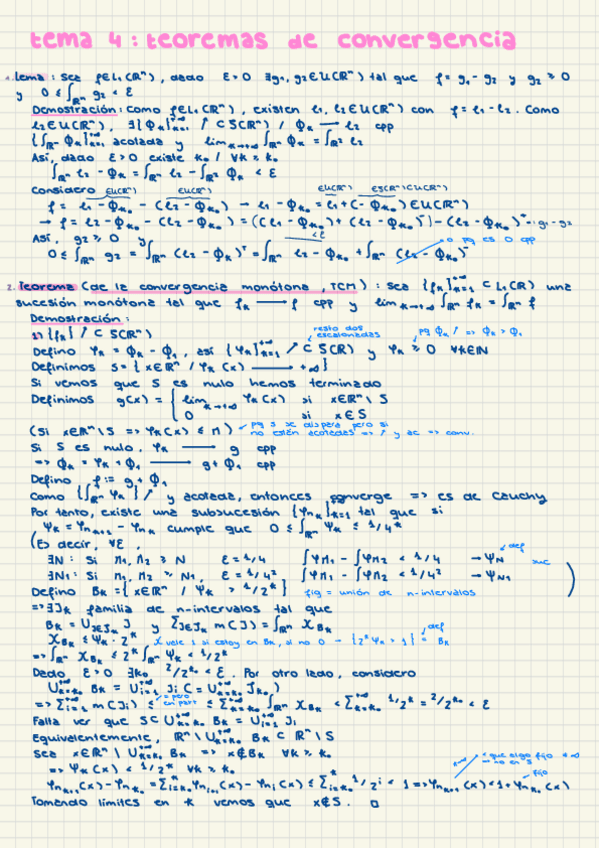 tema 4: teoremas de convergencia
1. Lema: sea f∈L₁(ℝⁿ), dado ε>0 ∃g₁,g₂∈U(ℝⁿ) tal que f=g₁-g₂ y g₂≥0
y 0≤∫ℝⁿ g₂<ε
Demostración: como f∈L₁(ℝⁿ), existen l₁,l₂∈U(ℝⁿ) con f=l₁-l₂. Como
l₂∈U(ℝⁿ), ∃{ϕₖ}ₖ₌₁^+∞ ↗ ⊂ S(ℝⁿ) / ϕₖ → l₂ cpp
{∫ℝⁿ ϕₖ}ₖ₌₁^+∞ acotada y lim k→+∞ ∫ℝⁿ ϕₖ = ∫ℝⁿ l₂
Así, dado ε>0 existe k₀ / ∀k≥k₀
∫ℝⁿ l₂-ϕₖ = ∫ℝⁿ l₂ - ∫ℝⁿ ϕₖ < ε
Considero
f = l₁-ϕₖ₀ - (l₂-ϕₖ₀) → l₁-ϕₖ₀ = l₁+(-ϕₖ₀)∈U(ℝⁿ)
Así, g₂≥0 y
0≤∫ℝⁿ g₂ = ∫ℝⁿ (l₂-ϕₖ₀)⁺ = ∫ℝⁿ l₂-ϕₖ₀ + ∫ℝⁿ (l₂-ϕₖ₀)⁻ 0 pq es 0 cpp
2. Teorema (de la convergencia monótona, TCM): sea {fₖ}ₖ₌₁^+∞ ⊂ L₁(ℝⁿ) una
sucesión monótona tal que fₖ → f cpp y lim k→+∞ ∫ℝⁿ fₖ = ∫ℝⁿ f
Demostración:
1) {fₖ} ↗ ⊂ S(ℝⁿ)
resto dos escalonadas
Defino Ψₖ = ϕₖ - ϕ₁, así {Ψₖ}ₖ₌₁^+∞ ↗ ⊂ S(ℝ) y Ψₖ ≥ 0 ∀k∈ℕ
Definimos S={x∈ℝⁿ / Ψₖ(x) → +∞}
Si vemos que S es nulo hemos terminado
Definimos g(x) = { lim k→+∞ Ψₖ(x) si x∈ℝⁿ\S
0 si x∈S
(Si x∈ℝⁿ\S => Ψₖ(x) ≤ M) pq s se dispara pero si
no están acotadas => ↗ y ac => conv.
Si S es nulo, Ψₖ → g cpp
=> ϕₖ = Ψₖ+ϕ₁ → g+ϕ₁ cpp
Defino f := g+ϕ₁
Como {∫ℝⁿ Ψₖ}↗ y acotada, entonces converge => es de Cauchy
Por tanto, existe una subsucesión {Ψnₖ}ₖ₌₁^+∞ tal que si
Ψₖ = Ψnₖ₊₁ - Ψnₖ cumple que 0≤∫ℝⁿ Ψₖ ≤ 1/4ᵏ
(Es decir, ∀ε,
∃N: Si n₁,n₂ ≥ N ε=1/4 ∫Ψn₁ - ∫Ψn₂ < 1/4 → ΨN def
∃N₁: Si n₁,n₂ ≥ N₁, ε=1/4² ∫Ψn₁ - ∫Ψn₂ < 1/4² → ΨN₁ )
Defino Bₖ={x∈ℝⁿ / Ψₖ > 1/2ᵏ} fig = unión de n-intervalos
=> ∃Jₖ familia de n-intervalos tal que
Bₖ = ∪J∈Jₖ J y ΣJ∈Jₖ m(J) = ∫ℝⁿ χBₖ
χBₖ ≤ Ψₖ·2ᵏ χ vale 1 si estoy en Bₖ, si no 0 → {2ᵏΨₖ > 1} = Bₖ def
=> ∫ℝⁿ χBₖ ≤ 2ᵏ∫ℝⁿ Ψₖ < 1/2ᵏ
Dado ε>0 ∃k₀, 2/2ᵏ⁰ < ε. Por otro lado, considero
∪ₖ₌ₖ₀^+∞ Bₖ = ∪ᵢ₌₁^+∞ Jᵢ
Falta ver que S⊂∪ₖ₌ₖ₀^+∞ Bₖ = ∪ᵢ₌₁^+∞ Jᵢ
Equivalentemente, ℝⁿ\∪ₖ₌ₖ₀^+∞ Bₖ ⊂ ℝⁿ\S
Sea x∈ℝⁿ\∪ₖ₌ₖ₀^+∞ Bₖ => x∉Bₖ ∀k≥k₀
=> Ψₖ(x) < 1/2ᵏ ∀k≥k₀
Tomando límites en k vemos que x∉S. □